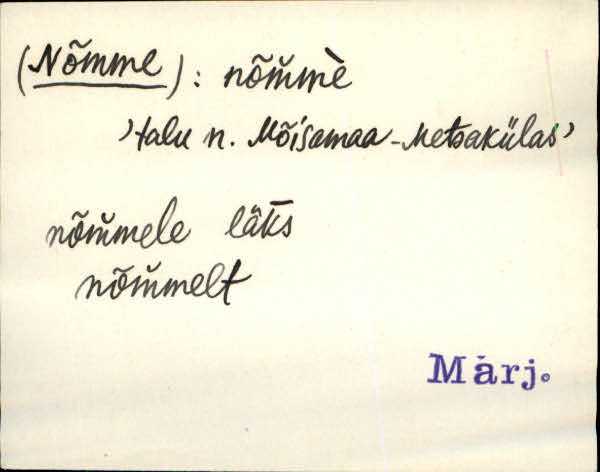 (Nõmme): nõm̆mè
’talu n. Mõisamaa-Metsakülas’
nõm̆mele läk̆s
nõm̆melt
Märj.